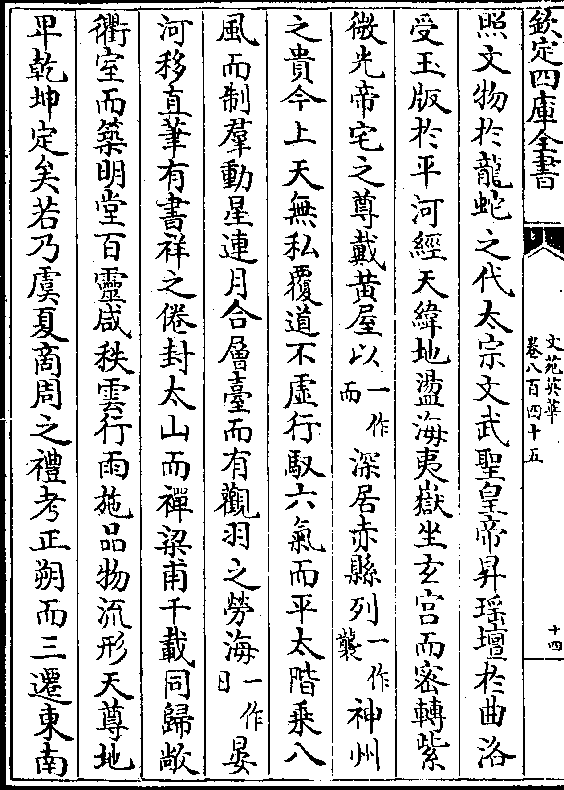 欽定四庫全書
文苑英華
卷八百四十五
十四
照文物於龍蛇之代太宗文武聖皇帝昇瑤壇於曲洛
受玉版於平河經天緯地盪海夷嶽坐玄宮而密轉紫
微光帝宅之尊戴黃屋以一作而深居赤縣列一作襲神州
之貴今上天無私覆道不虛行馭六氣而平太階乘八
風而制羣動星連月合層臺而有觀羽之勞海一作日晏
河移直筆有書祥之倦封太山而禪梁甫千載同歸敞
衢室而築明堂百靈咸秩雲行雨施品物流形天尊地
卑乾坤定矣若乃虞夏商周之禮考正朔而三遷東南